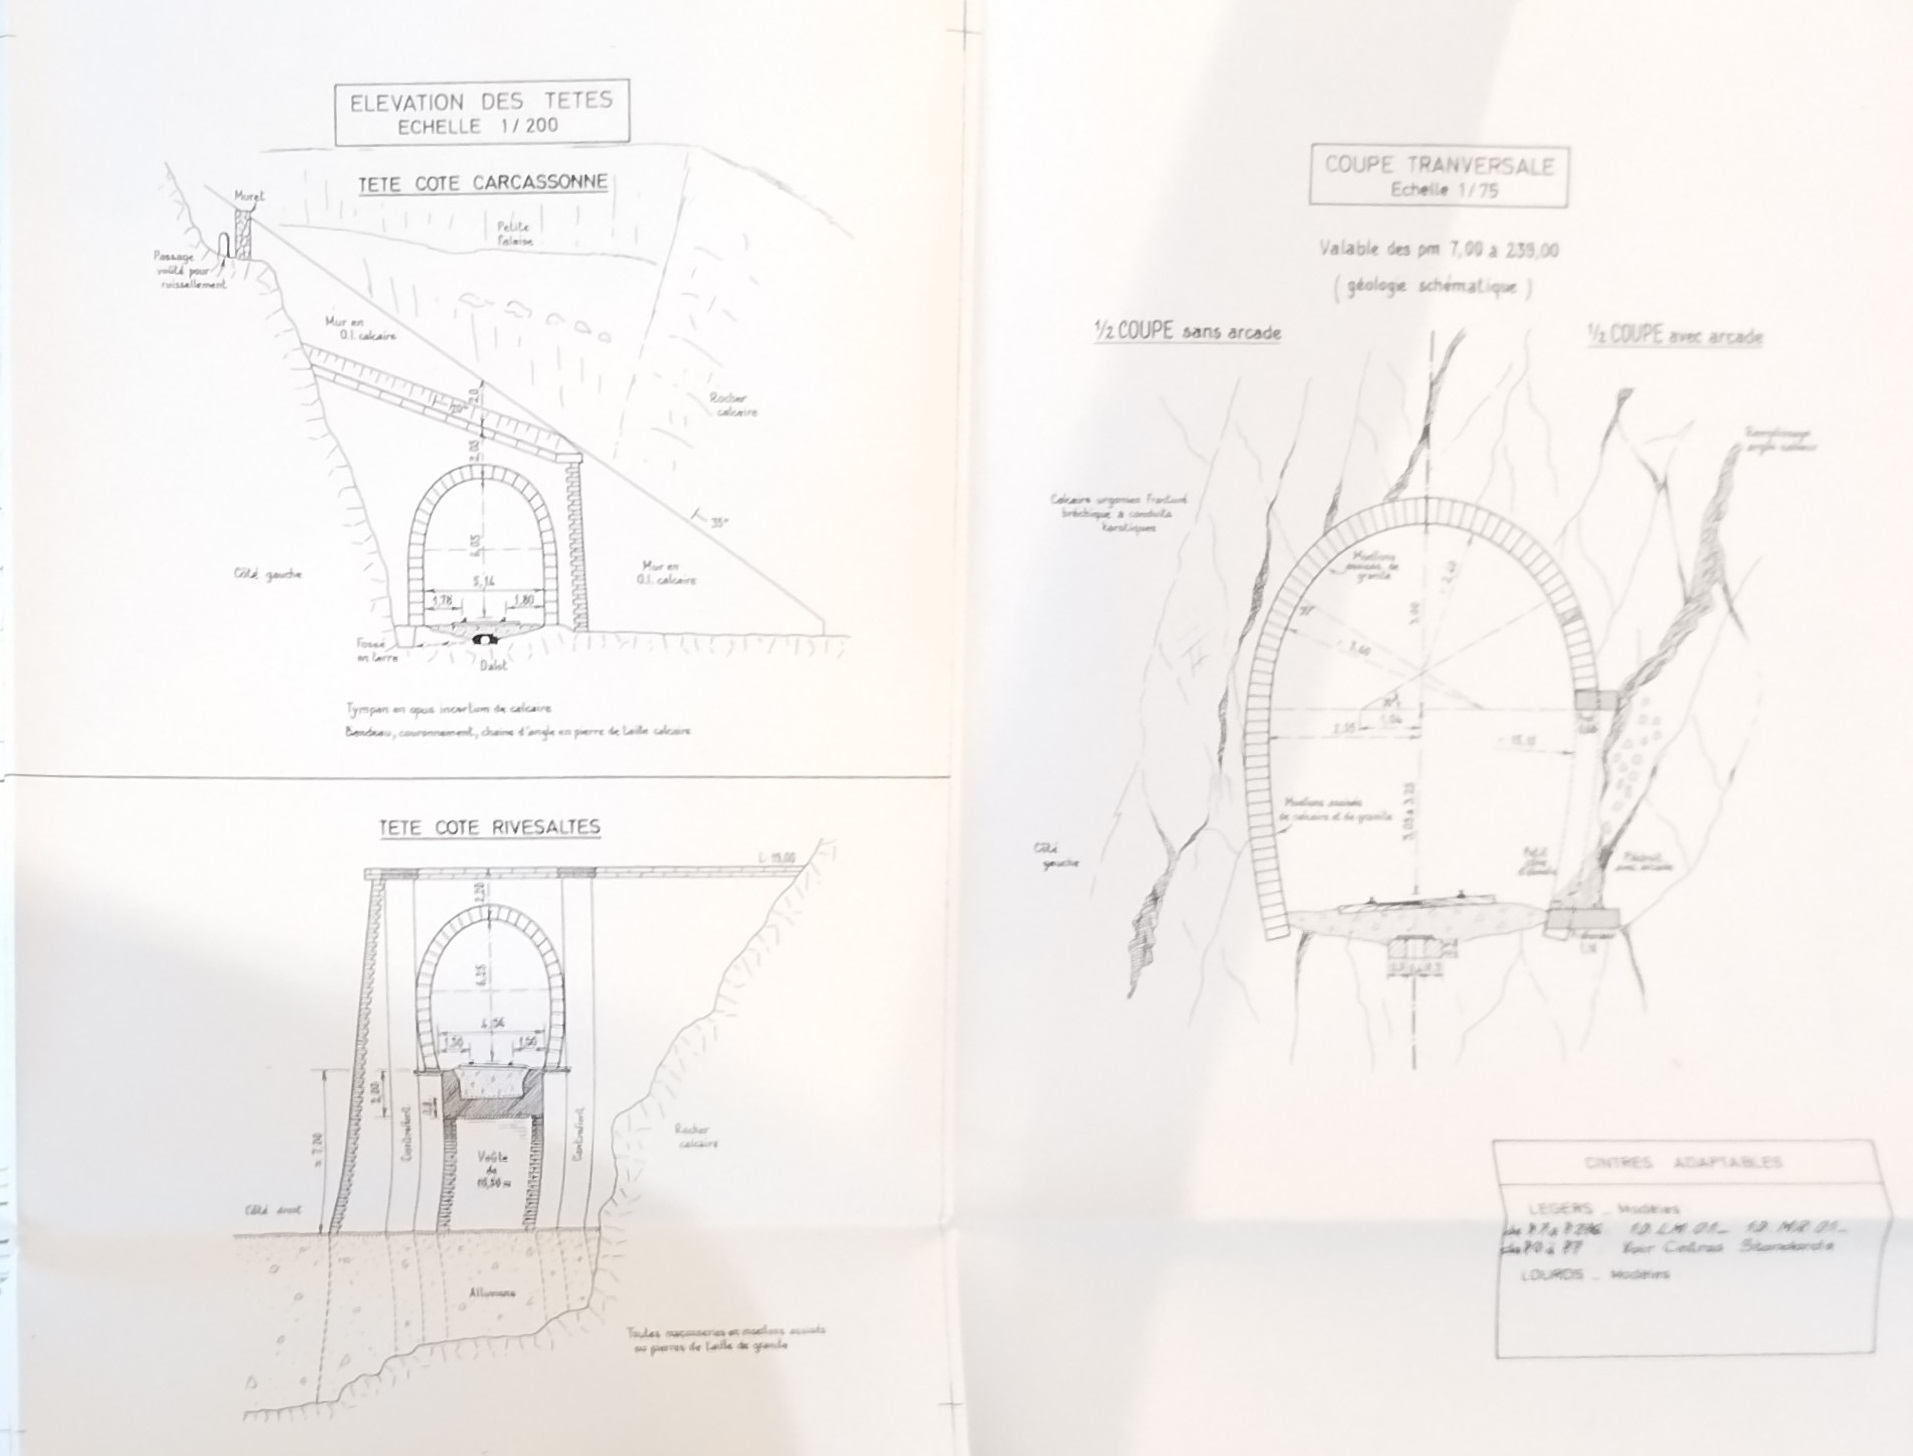 ELEVATION DES TETES
ECHELLE 1/200
TETE COTE CARCASSONNE
Muret
Petite
falaise
Passage
voûté pour
ruissellement
Mur en
O.I. calcaire
20°
2,0
2,05
Rocher
calcaire
35°
Côté gauche
6,05
5,14
1,78
1,80
Mur en
O.I. calcaire
Fossé
en terre
Dalot
Tympan en opus incertum de calcaire
Bandeau, couronnement, chaine d'angle en pierre de taille calcaire
TETE COTE RIVESALTES
L: 15,00
2,20
6,25
4,56
1,50
1,50
2,20
≈ 7,00
Contrefort
Contrefort
Voûte
de
Rocher
calcaire
Côté droit
Alluvions
Toutes maçonneries en moellons assisés
ou pierres de taille de granite
COUPE TRANVERSALE
Echelle 1/75
Valable des pm 7,00 à 239,00
( géologie schématique )
1/2 COUPE sans arcade
1/2 COUPE avec arcade
Remplissage
Calcaire urgonien fracturé
bréchique à conduits
karstiques
Moellons
assisés de
granite
3,00
3,60
1,04
2,05
Moellons assisés
de calcaire et de granite
3,05 à 3,25
Côté
gauche
Petit
CINTRES ADAPTABLES
LEGERS _ Modèles
Voir Cintres Standards
LOURDS _ Modèles